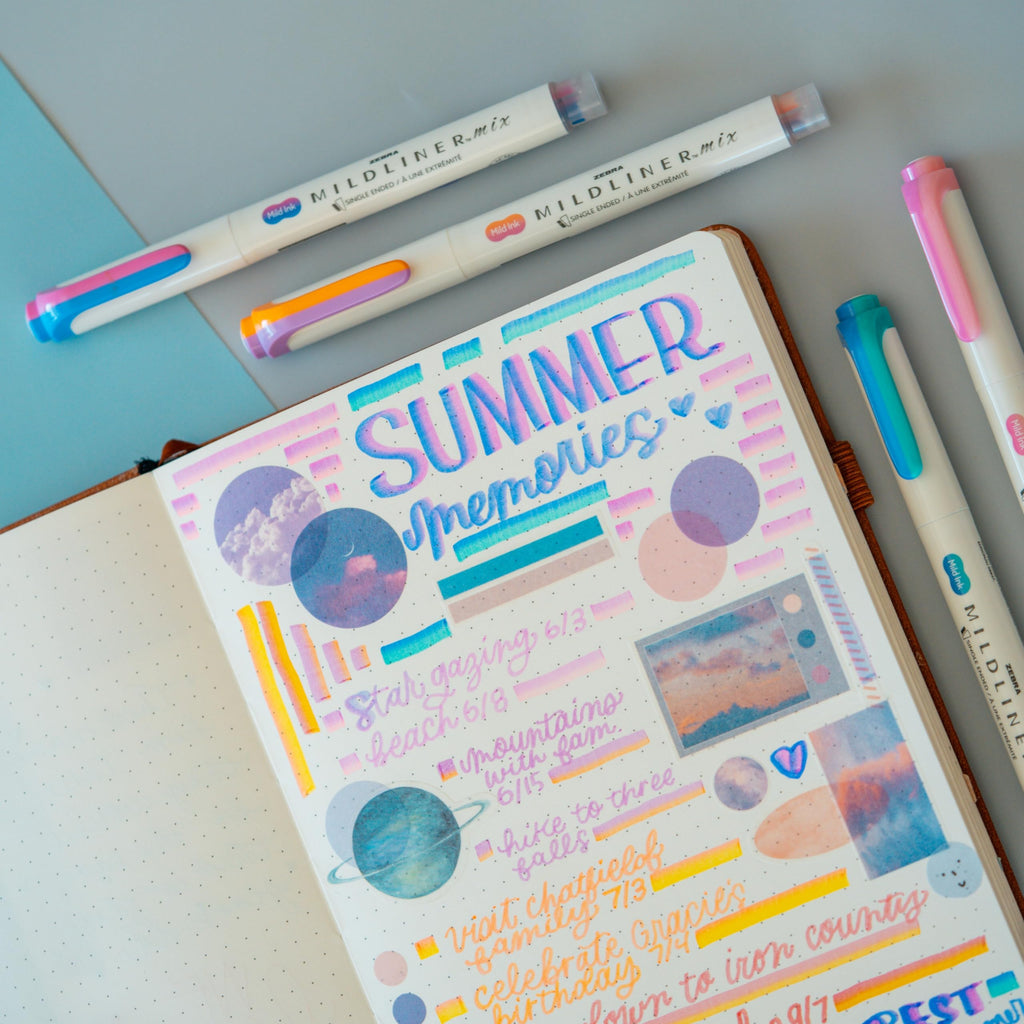 ZEBRA
MILDLINER™ mix
SINGLE ENDED / À UNE EXTRÉMITÉ
Mild Ink
ZEBRA
MILDLINER™ mix
SINGLE ENDED / À UNE EXTRÉMITÉ
Mild Ink
SUMMER
memories
Star gazing 6/3
beach 6/8
mountains
with fam
6/15
hike to three
falls
visit chatfield
family 7/3
celebrate Gracie's
birthday 7/4
down to iron county
9/7
BEST
Mild Ink
ZEBRA
MILDLINE
SINGLE ENDED
Mild Ink